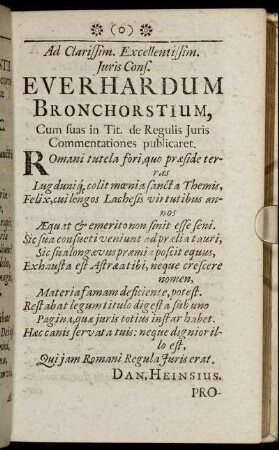 (o)
Ad Clarissim. Excellentissim.
Juris Cons.
EVERHARDUM
BRONCHORSTIUM,
Cum suas in Tit. de Regulis Juris
Commentationes publicaret.
Romani tutela fori, quo præside ter-
ras
Lugduniq́, colit mœnia sancta Themis,
Felix, cui longos Lachesis virtutibus an-
nos
Æquat & emerito non sinit esse seni.
Sic sua consueti veniunt ad prælia tauri,
Sic sua longævus præmia poscit equus,
Exhausta est Astræa tibi, neque crescere
nomen,
Materia famam deficiente, potest.
Restabat legum titulo digesta sub uno
Pagina, quæ juris totius instar habet.
Hæc canis servata tuis: neque dignior il-
lo est,
Qui jam Romani Regula Juris erat.
DAN. HEINSIUS.
PRO-